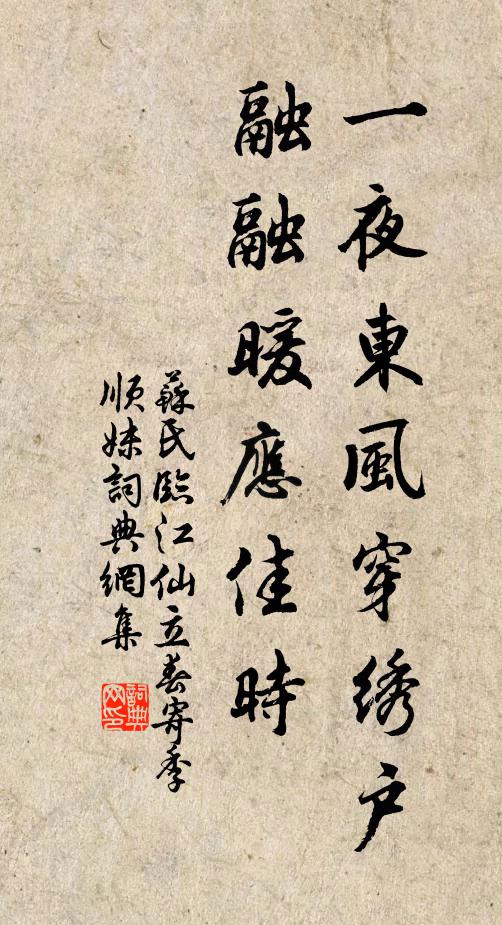 一夜東風穿绣户
融融暖應佳時
蘇氏臨江仙立春寄季
順妹詞典網集
詞典
网印